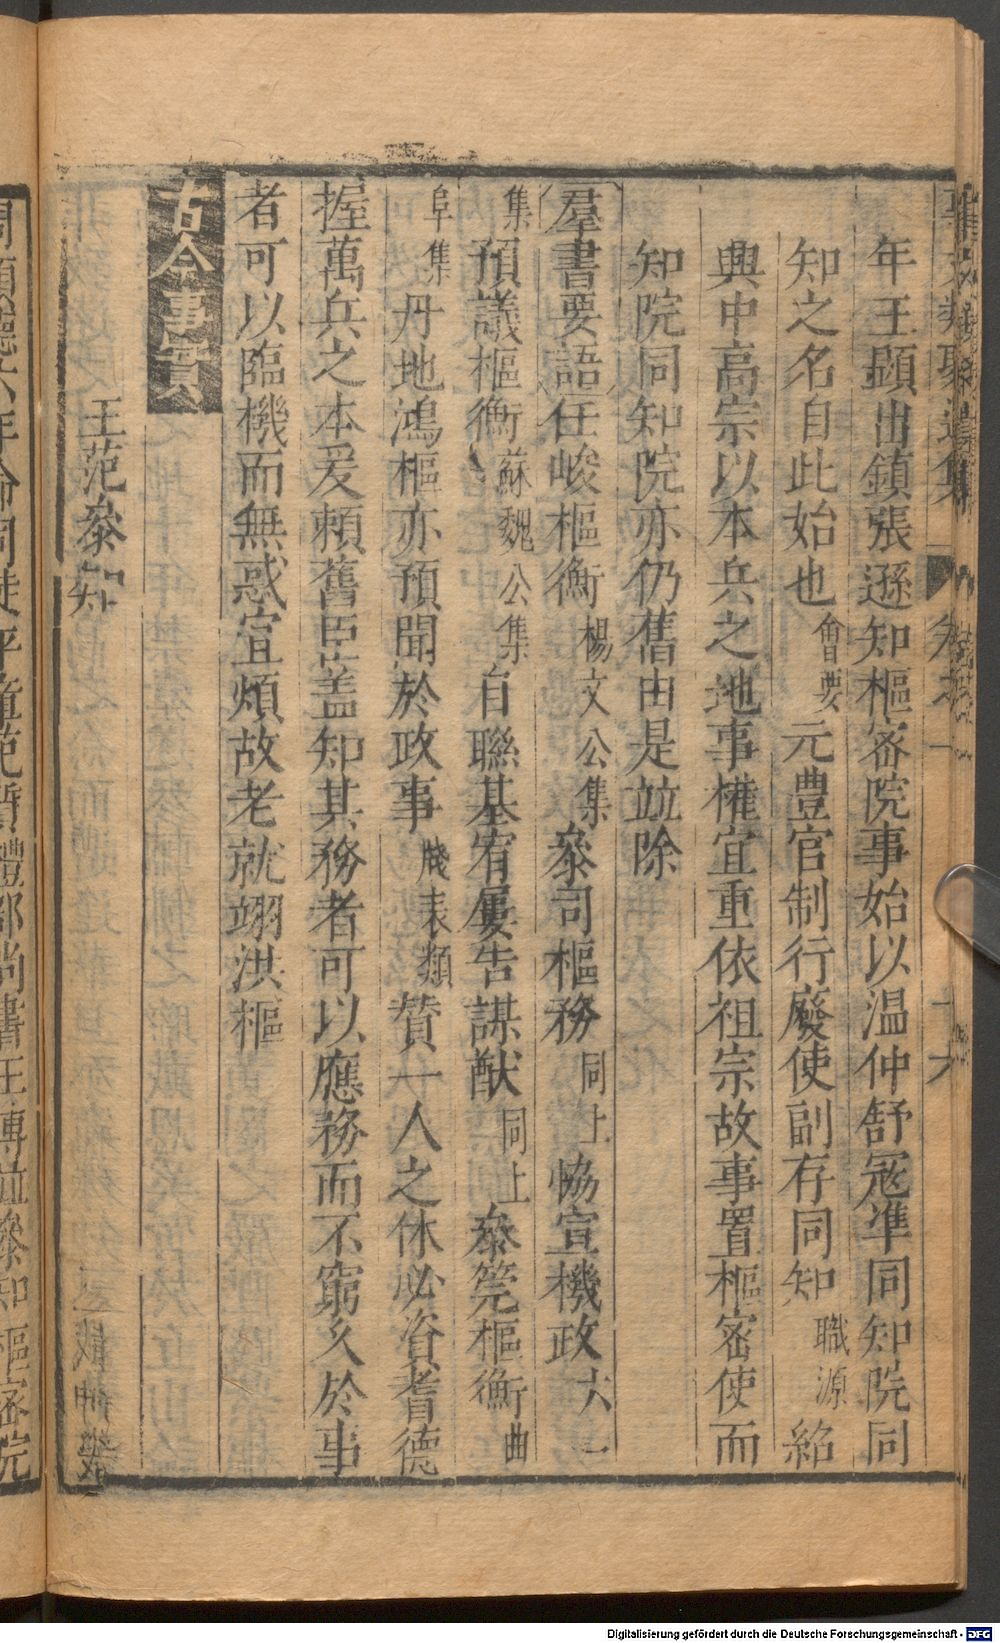 年王顯出鎮張遜知樞密院事始以温仲舒冦準同知院同
知之名自此始也會要元豐官制行廢使副存同知職源紹
興中高宗以本兵之地事權宜重依祖宗故事置樞密使而
知院同知院亦仍舊由是竝除
羣書要語任峻樞衡楊文公集叅司樞務同上恊宣機政大一
集預議樞衡蘇魏公集自聯基宥屢告謀猷同上叅筦樞衡曲
阜集丹地鴻樞亦預聞於政事牋表類賛一人之休必資耆德
握萬兵之本爰頼舊臣盖知其務者可以應務而不窮久於事
者可以臨機而無惑宜煩故老就翊洪樞
古今事實
王范叅知
周顯德六年命司徒平章范質禮部尚書王溥並叅知樞密院
Digitalisierung gefördert durch die Deutsche Forschungsgemeinschaft - DFG